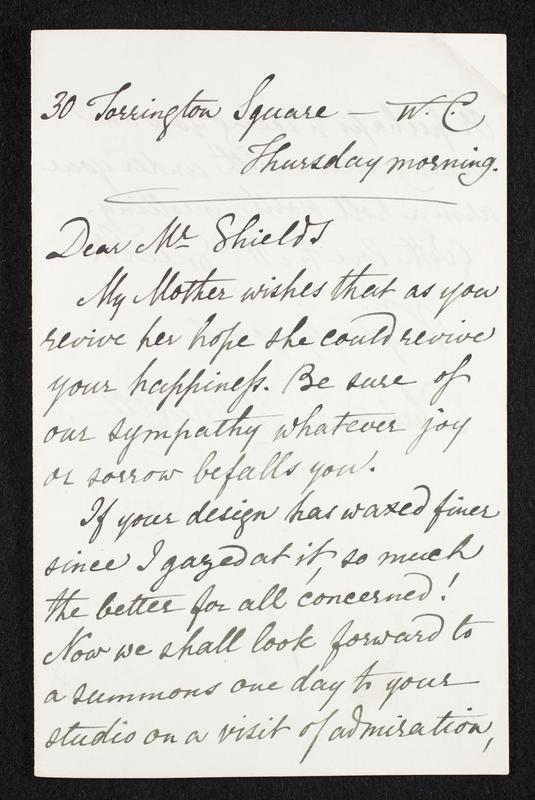 30 Torrington Square – W. C.
Thursday morning.
Dear Mr Shields
My Mother wishes that as you
revive her hope she could revive
your happiness. Be sure of
our sympathy whatever joy
or sorrow befalls you.
If your design has waxed finer
since I gazed at it, so much
the better for all concerned!
Now we shall look forward to
a summons one day to your
studio on a visit of admiration,